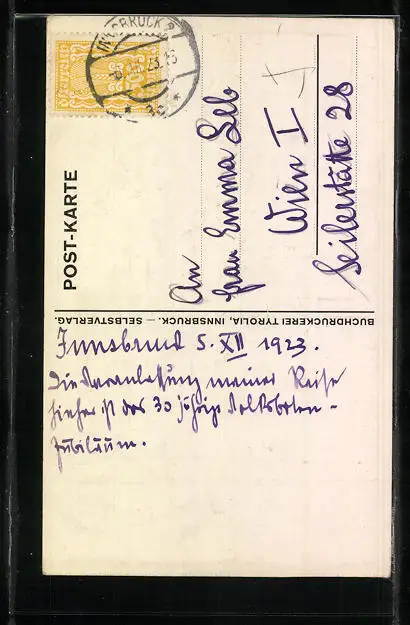 POST-KARTE
An
Frau Emma Löb
Wien I
Seilerstätte 28
BUCHDRUCKEREI TYROLIA, INNSBRUCK. — SELBSTVERLAG.
Innsbruck 5. XII 1923.
Die Veranlassung meiner Reise
hieher ist das 30 jährige Volksboten-
Jubiläum.